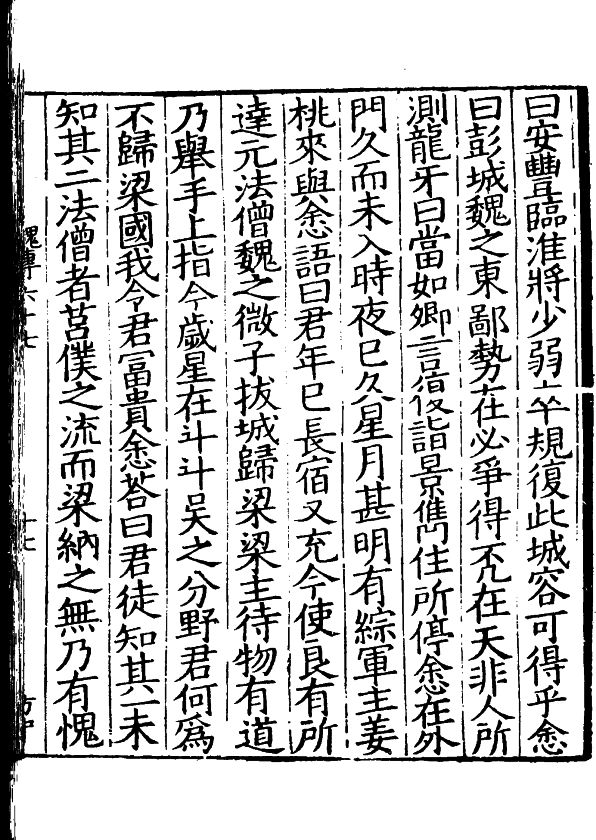 曰安豐臨淮將少弱卒規復此城容可得乎悆
曰彭城魏之東鄙勢在必爭得否在天非人所
測龍牙曰當如卿言復詣景儁住所停悆在外
門久而未入時夜已久星月甚明有綜軍主姜
桃來與悆語曰君年已長宿又充今使良有所
達元法僧魏之微子拔城歸梁梁主待物有道
乃舉手上指今歲星在斗斗吳之分野君何爲
不歸梁國我令君富貴悆荅曰君徒知其一未
知其二法僧者莒僕之流而梁納之無乃有愧
魏傳六十七
十七